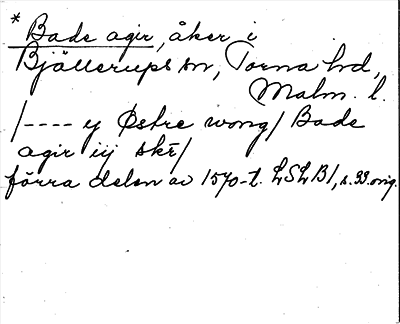 * Bade agir, åker i
Bjällerups sn, Torna hd,
Malm. l.
/---- y Østre wong/ Bade
agir iij skē/
förra delen av 1570-t. LSLB1, s. 33. orig.